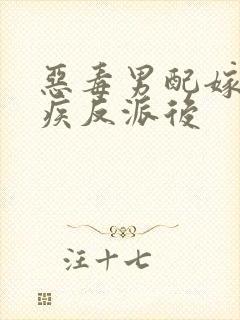 惡毒男配嫁
疾反派後
汪十七